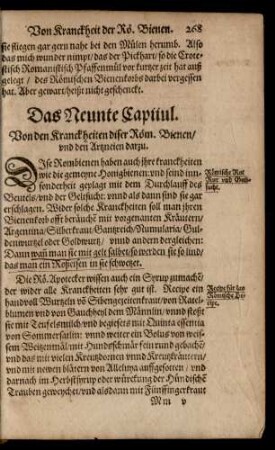 Von Kranckheit der Rö. Bienen. 268
sie fliegen gar gern nahe bei den Mülen herumb. Also
das mich wunder nimpt/ das der Pickhart/ so die Grote-
stisch Romanistisch Pfaffenmül vor kurtzer zeit hat auß
gelegt/ des Römischen Bienenkorbs darbei vergessen
hat. Aber gewart/ heißt nicht geschenckt.
Das Neunte Capitul.
Von den Kranckheiten diser Röm. Bienen/
vnd den Artzneien darzu.
DIse Rombienen haben auch jhre kranckheiten
wie die gemeyne Honigbienen: vnd seind inn-
sonderheit geplagt mit dem Durchlauff des
Beutels/ vnd der Geltsucht: vnd als dann sind sie gar
erschlagen. Wider solche Kranckheiten soll man jhren
Bienenkorb offt beräuchē mit vorgenanten Kräutern/
Argentina/ Silberkraut/ Gantzreich/ Nummularia/ Gul-
denwurtzel oder Goldwurtz/ vnnd andern dergleichen:
Dann wañ man sie mit gelt salbet/ so werden sie so lind/
das man ein Roßeisen in sie schwetzet.
Römische Rot
Rur vnd Gelt-
sucht.
Die Rö. Apotecker wissen auch ein Syrup zumachē/
der wider alle Kranckheiten sehr gut ist. Recipe ein
handvoll Wurtzeln vō Sibengezeitenkraut/ von Ratel-
blumen vnd von Gauchheyl dem Männlin/ vnnd stoßt
sie mit Teufelsmilch/ vnd begießts mit Quinta essentia
von Sommersaltin: vnnd weiter ein Bolus von weis-
sem Weitzenmäl mit Hundsschmär fein rund gebachē/
vnd das mit vielen Kreutzdornen vnnd Kreutzkräutern/
vnd mit neven blätern von Alleluya auffgesotten/ vnd
darnach im Herbstsyrup oder würckung der Hündischē
Trauben geweychet/ vnd alsdann mit Fünffingerkraut
M m v